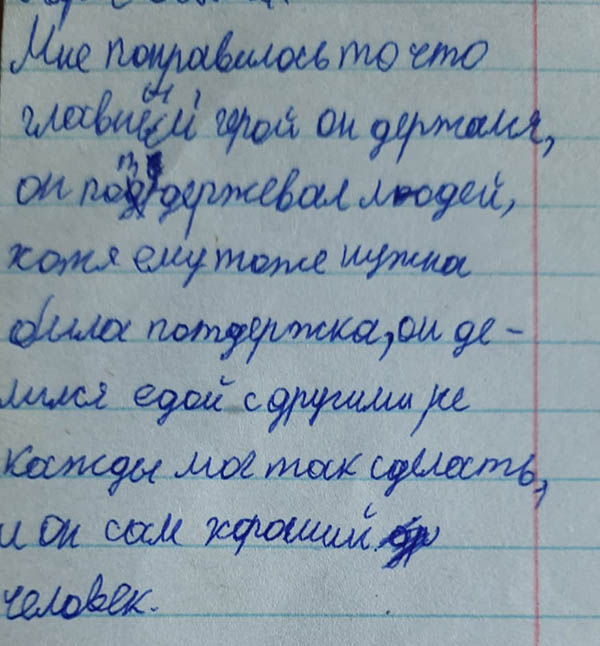 Мне понравилось то что
главный герой он держался,
он потдержевал людей,
хотя ему тоже нужна
была потдержка, он де-
лился едой с другими не
кажды мог так сделать,
и он сам хороший
человек.